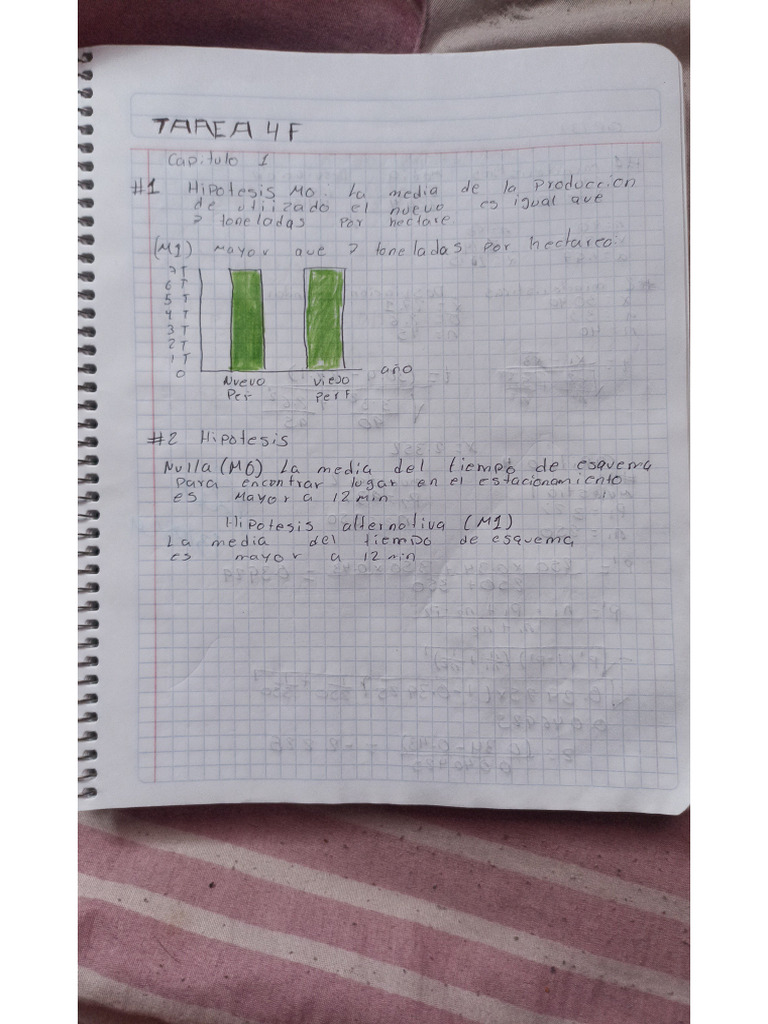 TAREA 4 F
Capitulo 1
#1 Hipotesis M0: La media de la Produccion
de utiizado el nuevo es igual que
7 toneladas por hectare.
(M1) mayor que 7 toneladas por hectareo.
7 T
6 T
5 T
4 T
3 T
2 T
1 T
0
año
Nuevo Viejo
Per Perf
#2 Hipotesis
Nulla (M0) La media del tiempo de esquema
para encontrar lugar en el estacionamiento
es mayor a 12 min
Hipotesis alternativa (M1)
La media del tiempo de esquema
es mayor a 12 min